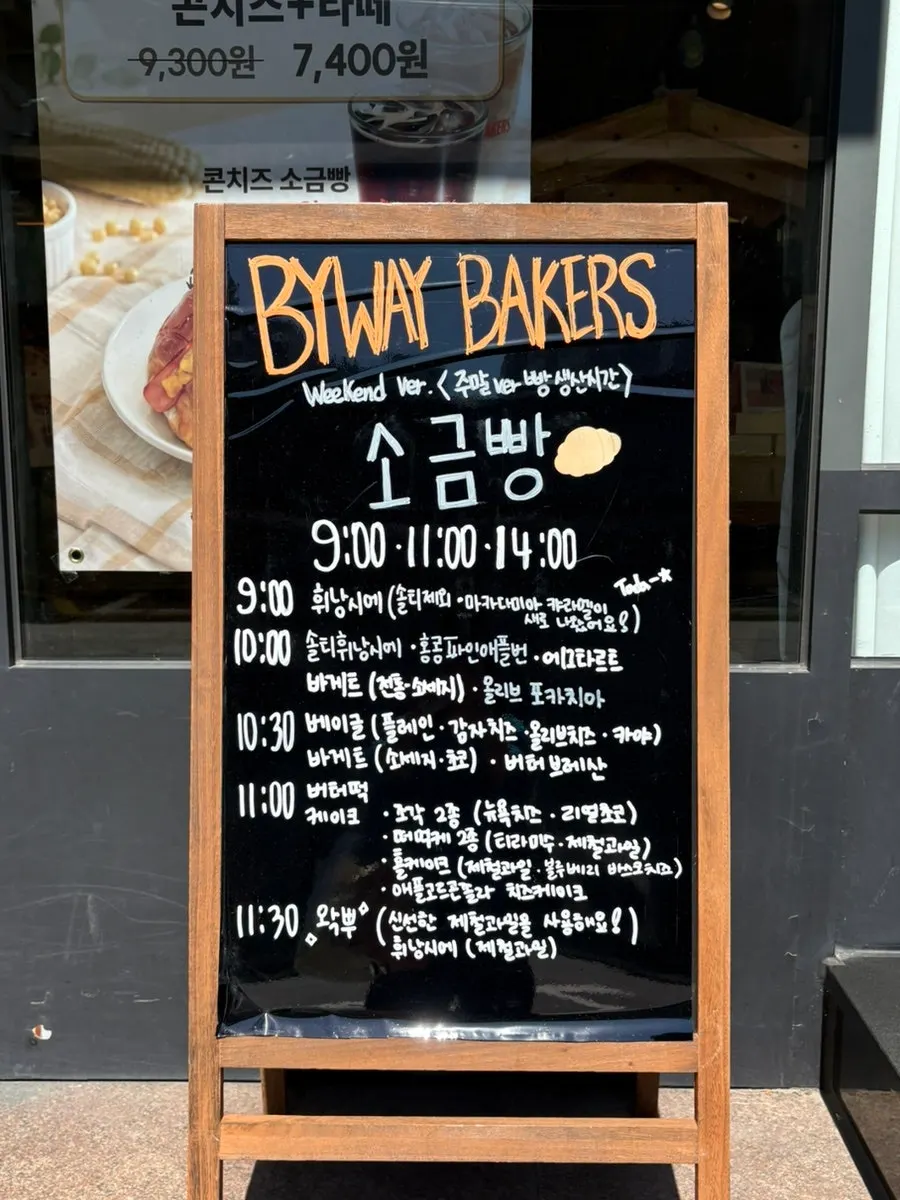 콘치즈+라떼
9,300원 7,400원
콘치즈 소금빵
BYWAY BAKERS
Weekend ver. <주말 ver 빵 생산시간>
소금빵
9:00 · 11:00 · 14:00
Tada~★
9:00 휘낭시에 (솔티제외 · 마카다미아 캬라멜이
새로 나왔어요!)
10:00 솔티휘낭시에 · 홍콩파인애플번 · 에그타르트
바게트 (전통·소세지) · 올리브 포카치아
10:30 베이글 (플레인 · 감자치즈 · 올리브치즈 · 카야)
바게트 (소세지 · 초코) · 버터 브레산
11:00 버터떡
케이크 · 조각 2종 (뉴욕치즈 · 리얼초코)
· 떠먹케 2종 (티라미수 · 제철과일)
· 홀케이크 (제철과일 · 블루베리 바스크치즈)
· 애플고르곤졸라 치즈케이크
11:30 왁뿌 (신선한 제철과일을 사용해요!)
휘낭시에 (제철과일)